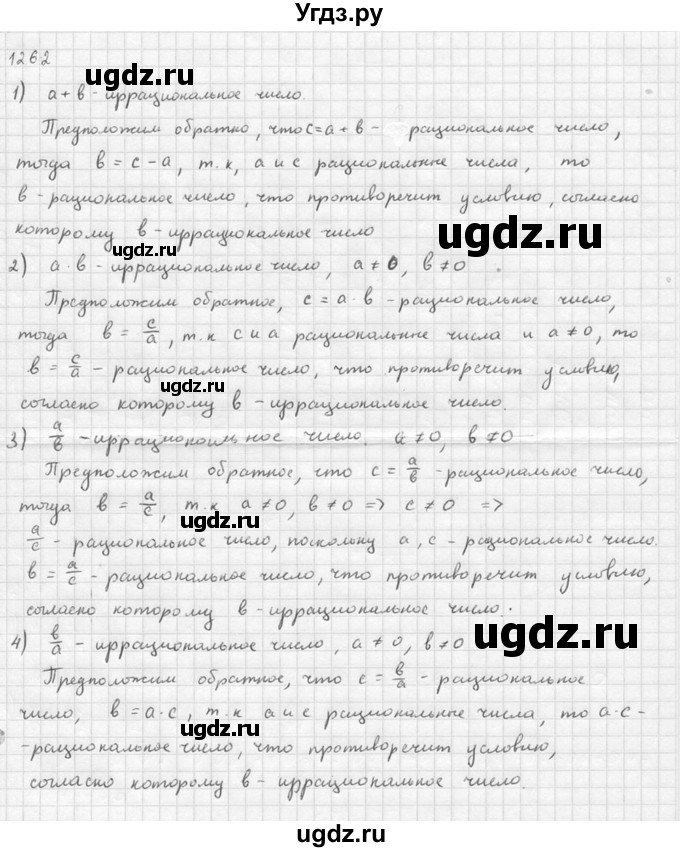 Угдз.ру
1262
ugdz.ru
1) a+b - иррациональное число.
Предположим обратно, что c=a+b - рациональное число,
ugdz.ru
тогда b = c-a, т.к, a и c рациональные числа, то
b - рациональное число, что противоречит условию, согласно
которому b - иррациональное число
ugdz.ru
2) a·b - иррациональное число, a≠0, b≠0
Предположим обратное, c = a·b - рациональное число,
ugdz.ru
тогда b = c/a, т.к c и a рациональные числа и a≠0, то
b = c/a - рациональное число, что противоречит условию,
ugdz.ru
согласно которому b - иррациональное число.
3) a/b - иррациональное число. a≠0, b≠0
Предположим обратное, что c = a/b - рациональное число,
тогда b = a/c, т.к a≠0, b≠0 => c≠0 =>
ugdz.ru
a/c - рациональное число, поскольку a, c - рациональное число.
b = a/c - рациональное число, что противоречит условию,
ugdz.ru
согласно которому b - иррациональное число.
4) b/a - иррациональное число, a≠0, b≠0
ugdz.ru
Предположим обратное, что c = b/a - рациональное
число, b = a·c, т.к a и c рациональные числа, то a·c -
ugdz.ru
-рациональное число, что противоречит условию,
согласно которому b - иррациональное число.
ugdz.ru
ugdz.ru